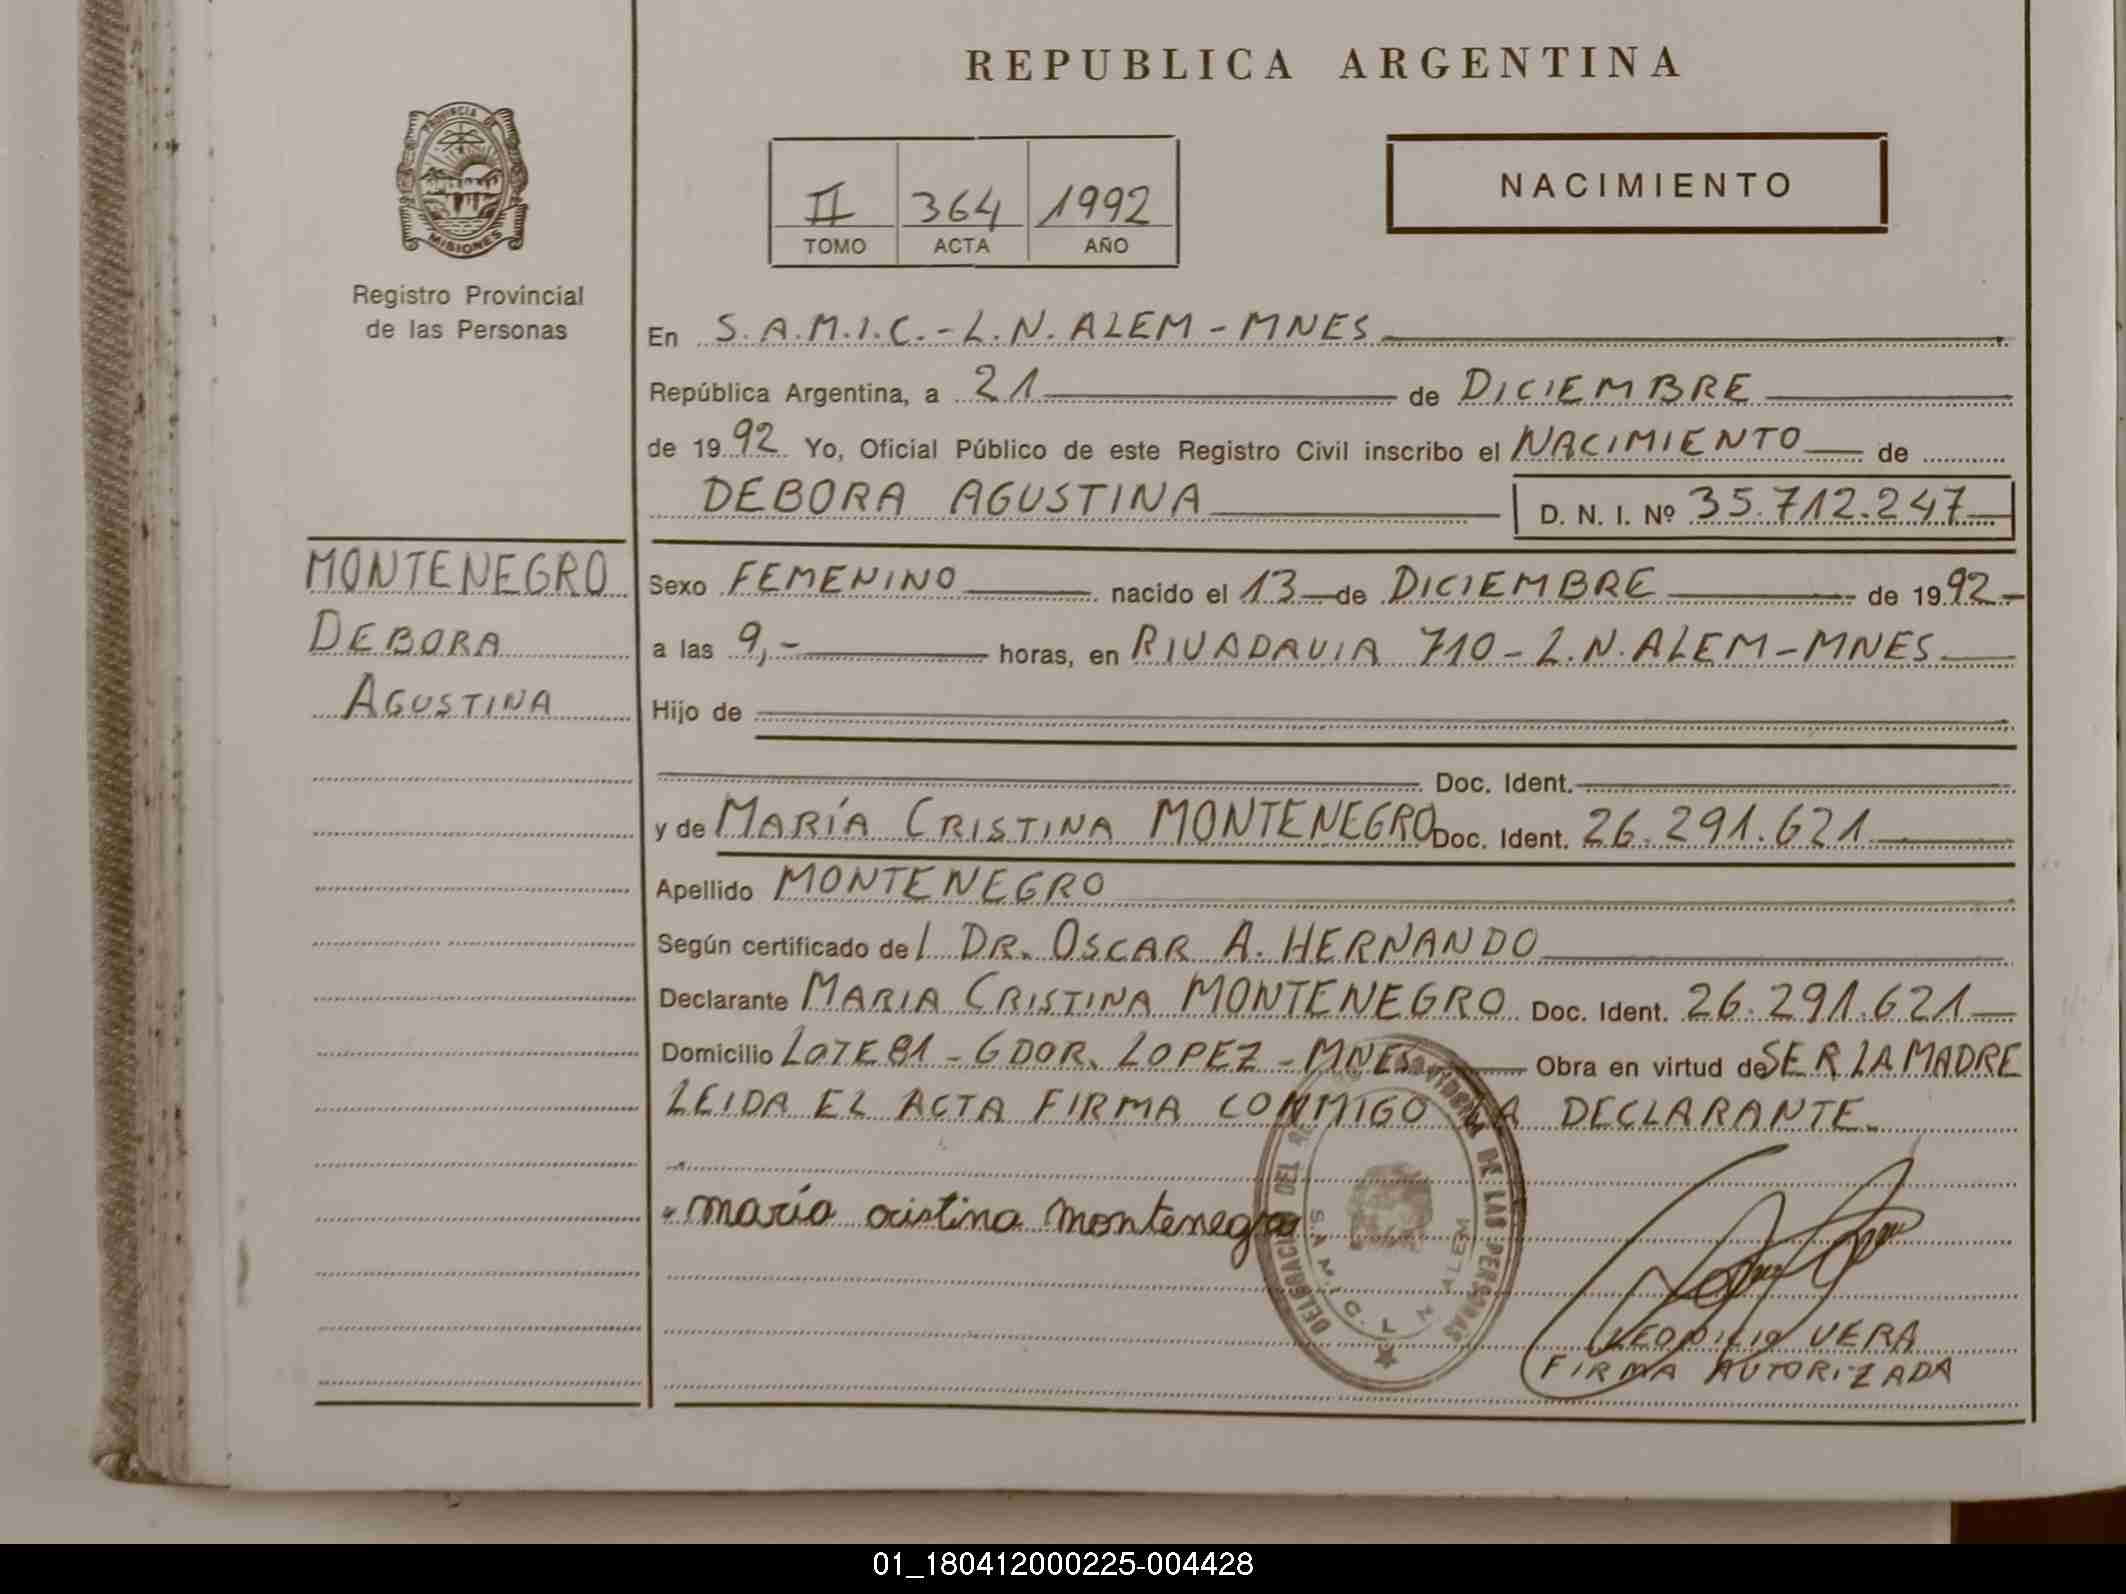 REPUBLICA ARGENTINA
PROVINCIA DE
MISIONES
Registro Provincial
de las Personas
II 364 1992
TOMO ACTA AÑO
NACIMIENTO
En S.A.M.I.C.-L.N.ALEM-MNES
República Argentina, a 21 de DICIEMBRE
de 1992 Yo, Oficial Público de este Registro Civil inscribo el NACIMIENTO de
DEBORA AGUSTINA D. N. I. Nº 35.712.247
MONTENEGRO
DEBORA
AGUSTINA
Sexo FEMENINO nacido el 13 de DICIEMBRE de 1992.-
a las 9,- horas, en RIVADAVIA 710-L.N.ALEM-MNES
Hijo de
Doc. Ident.
y de MARÍA CRISTINA MONTENEGRO Doc. Ident. 26.291.621
Apellido MONTENEGRO
Según certificado del DR. OSCAR A. HERNANDO
Declarante MARIA CRISTINA MONTENEGRO Doc. Ident. 26.291.621
Domicilio LOTE 81-GDOR. LOPEZ-MNES Obra en virtud de SER LA MADRE
LEIDA EL ACTA FIRMA CONMIGO LA DECLARANTE.
maría cristina montenegro
DE LAS PERSONAS
S.A.M.I.C. L N ALEM
VERA
FIRMA AUTORIZADA
01_180412000225-004428